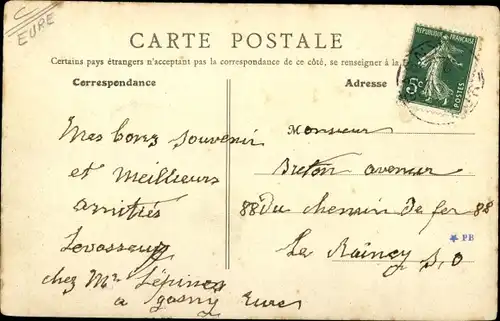 C
EURE
CARTE POSTALE
Certains pays étrangers n'acceptant pas la correspondance de ce côté, se renseigner à la
Correspondance
Adresse
REPUBLIQUE FRANÇAISE
5c
POSTES
Mes bons souvenir
et meilleurs
amitiés
Levasseur
chez Mr Lépine
a gasny Eure
Monsieur
Breton
88 Du chemin de fer 88
Le Raincy S, O
PB